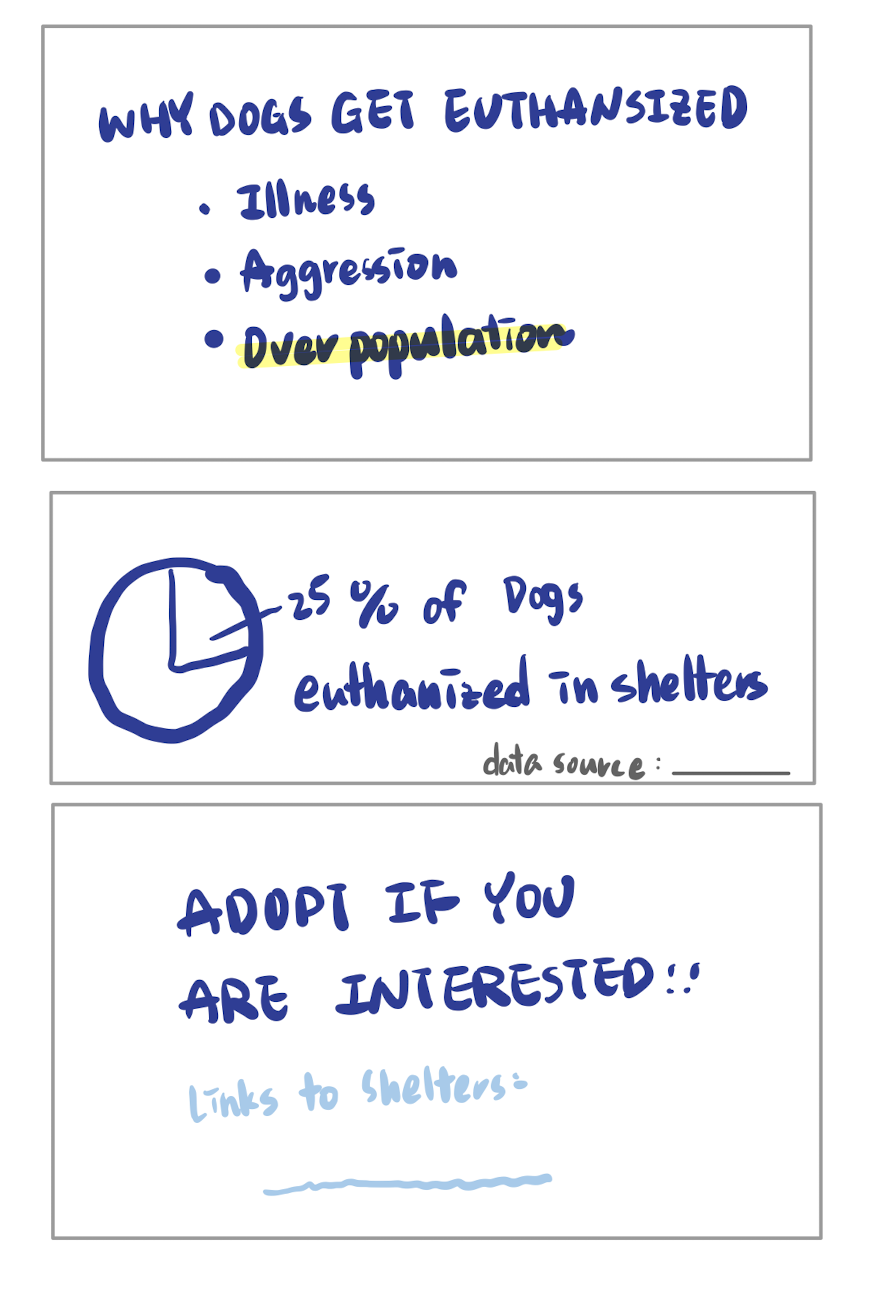 WHY DOGS GET EUTHANSIZED
• Illness
• Aggression
• Over population
25 % of Dogs
euthanized in shelters
data source : ________
ADOPT IF YOU
ARE INTERESTED!!
Links to Shelters: